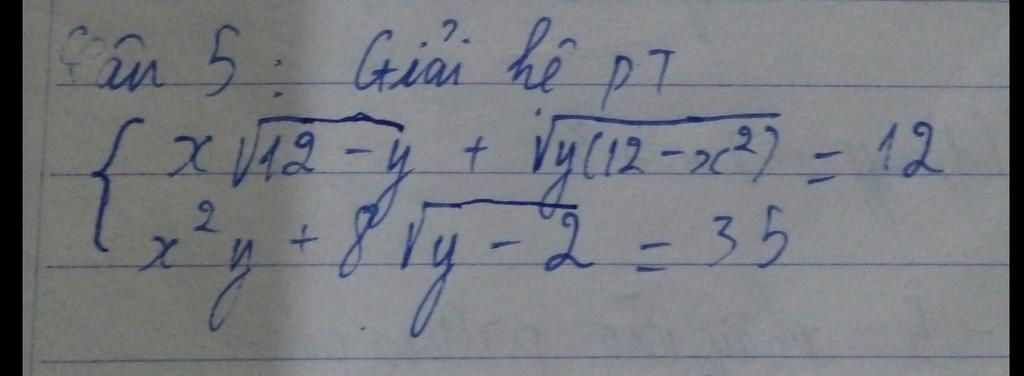 Câu 5: Giải hê pT
{ x√(12 - y) + √(y(12 - x²)) = 12
x²y + 8√(y - 2) = 35